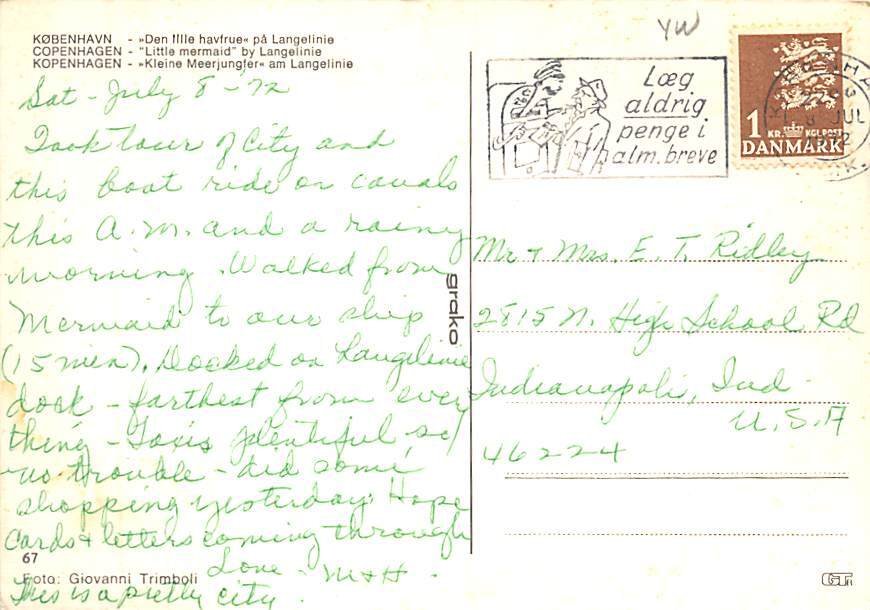 KØBENHAVN - »Den lille havfrue« på Langelinie
COPENHAGEN - "Little mermaid" by Langelinie
KOPENHAGEN - »Kleine Meerjungfer« am Langelinie
Sat - July 8 - '72
Took tour of City and
this boat ride on canals
this A.M. and a rainy
morning. Walked from
Mermaid to our ship
(15 min). Docked on Langelinie
dock - farthest from every
thing - Taxis plentiful so
no trouble - did some
shopping yesterday. Hope
cards & letters coming through
Love - M & H.
This is a pretty city.
67
Foto: Giovanni Trimboli
grako
YW
Læg
aldrig
penge i
alm. breve
1 KR. KGL POST
DANMARK
8 JUL
Mr & Mrs. E. T. Ridley
2815 N. High School Rd
Indianapolis, Ind
U.S.A
46224